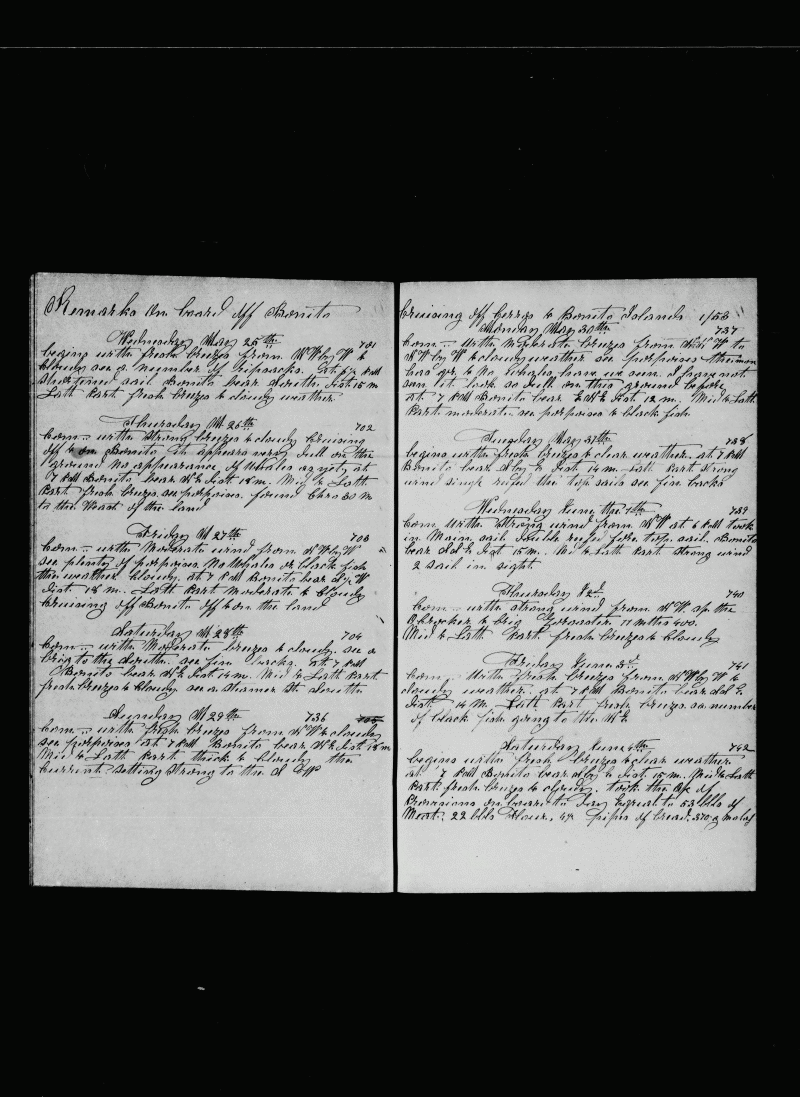 Remarks on board off Bonito
Wednesday May 25th 701
begins with fresh breeze from NW by W &
cloudy see a number of ripsacks. at 6 1/2 PM
shortened sail Bonito bear South Dist 15 m
Lath Part fresh breeze & cloudy weather
Thursday M 26th 702
Com-- with strong breeze & cloudy Cruising
off & on Bonito it appears very dull on the
ground No appearance of Whales as yet, at
7 PM Bonito bear Dist 18 m. Mid & Lath
Part fresh breeze see porpoises. found Chro 30 M
to the West of the land
Friday M 27th 703
Com-- with Moderate wind from NW by W
see plenty of porpoises No Whales or black fish
the weather cloudy. at 7 PM Bonito bear W
Dist. 18 m. Lath Part Moderate & Cloudy
Cruising off Bonito off & on the land
Saturday M 28th 704
Com-- with Moderate breeze & cloudy see a
brig to the South. see fin backs. at 7 PM
Bonito bear Dist 14 m. Mid & Lath Part
fresh breeze & Cloudy see a steamer St South
Sunday M 29th 736 705
Com-- with fresh breeze from NW & cloudy
see porpoises at 7 PM Bonito bear Dist 18 m
Mid & Lath Part thick & Cloudy the
Current setting Strong to the S W
Cruising off Cerros & Bonito Islands 1/53
Monday May 30th 737
Com-- With Moderate breeze from W to
NW by W & cloudy weather see porpoises the moon
has & No Whales have we seen. I have not
seen it look so dull on this ground before
at 7 PM Bonito bear Dist 12 m. Mid & Lath
Part moderate see porpoises & black fish
Tuesday May 31th 738
begins with fresh breeze & clear weather. at 7 PM
Bonito bear S by E Dist 14 m. Lath Part Strong
wind single reefed the top sails see fin backs
Wednesday June the 1th 739
Com With Strong wind from NW at 6 PM took
in Main sail double reefed fore top sail. Bonito
bear Dist 15 m. Mid & Lath Part Strong wind
2 sail in sight
Thursday J 2d 740
Com-- with strong wind from NW
brig 400.
Mid & Lath Part fresh breeze & Cloudy
Friday June 3d 741
Com-- With fresh breeze from NW by W &
cloudy weather. at 7 PM Bonito bear
Dist. 14 M. Lath Part fresh breeze. see number
of black fish going to the
Saturday June 4th 742
begins with fresh breeze & clear weather
at 7 PM Bonito bear S by E Dist 15 m. Mid & Lath
Part fresh breeze & cloudy. took the of
Provisions on board to Day Equal to 53 bbls of
Meat. 22 bbls Flour. pipes of bread. 370 g molas